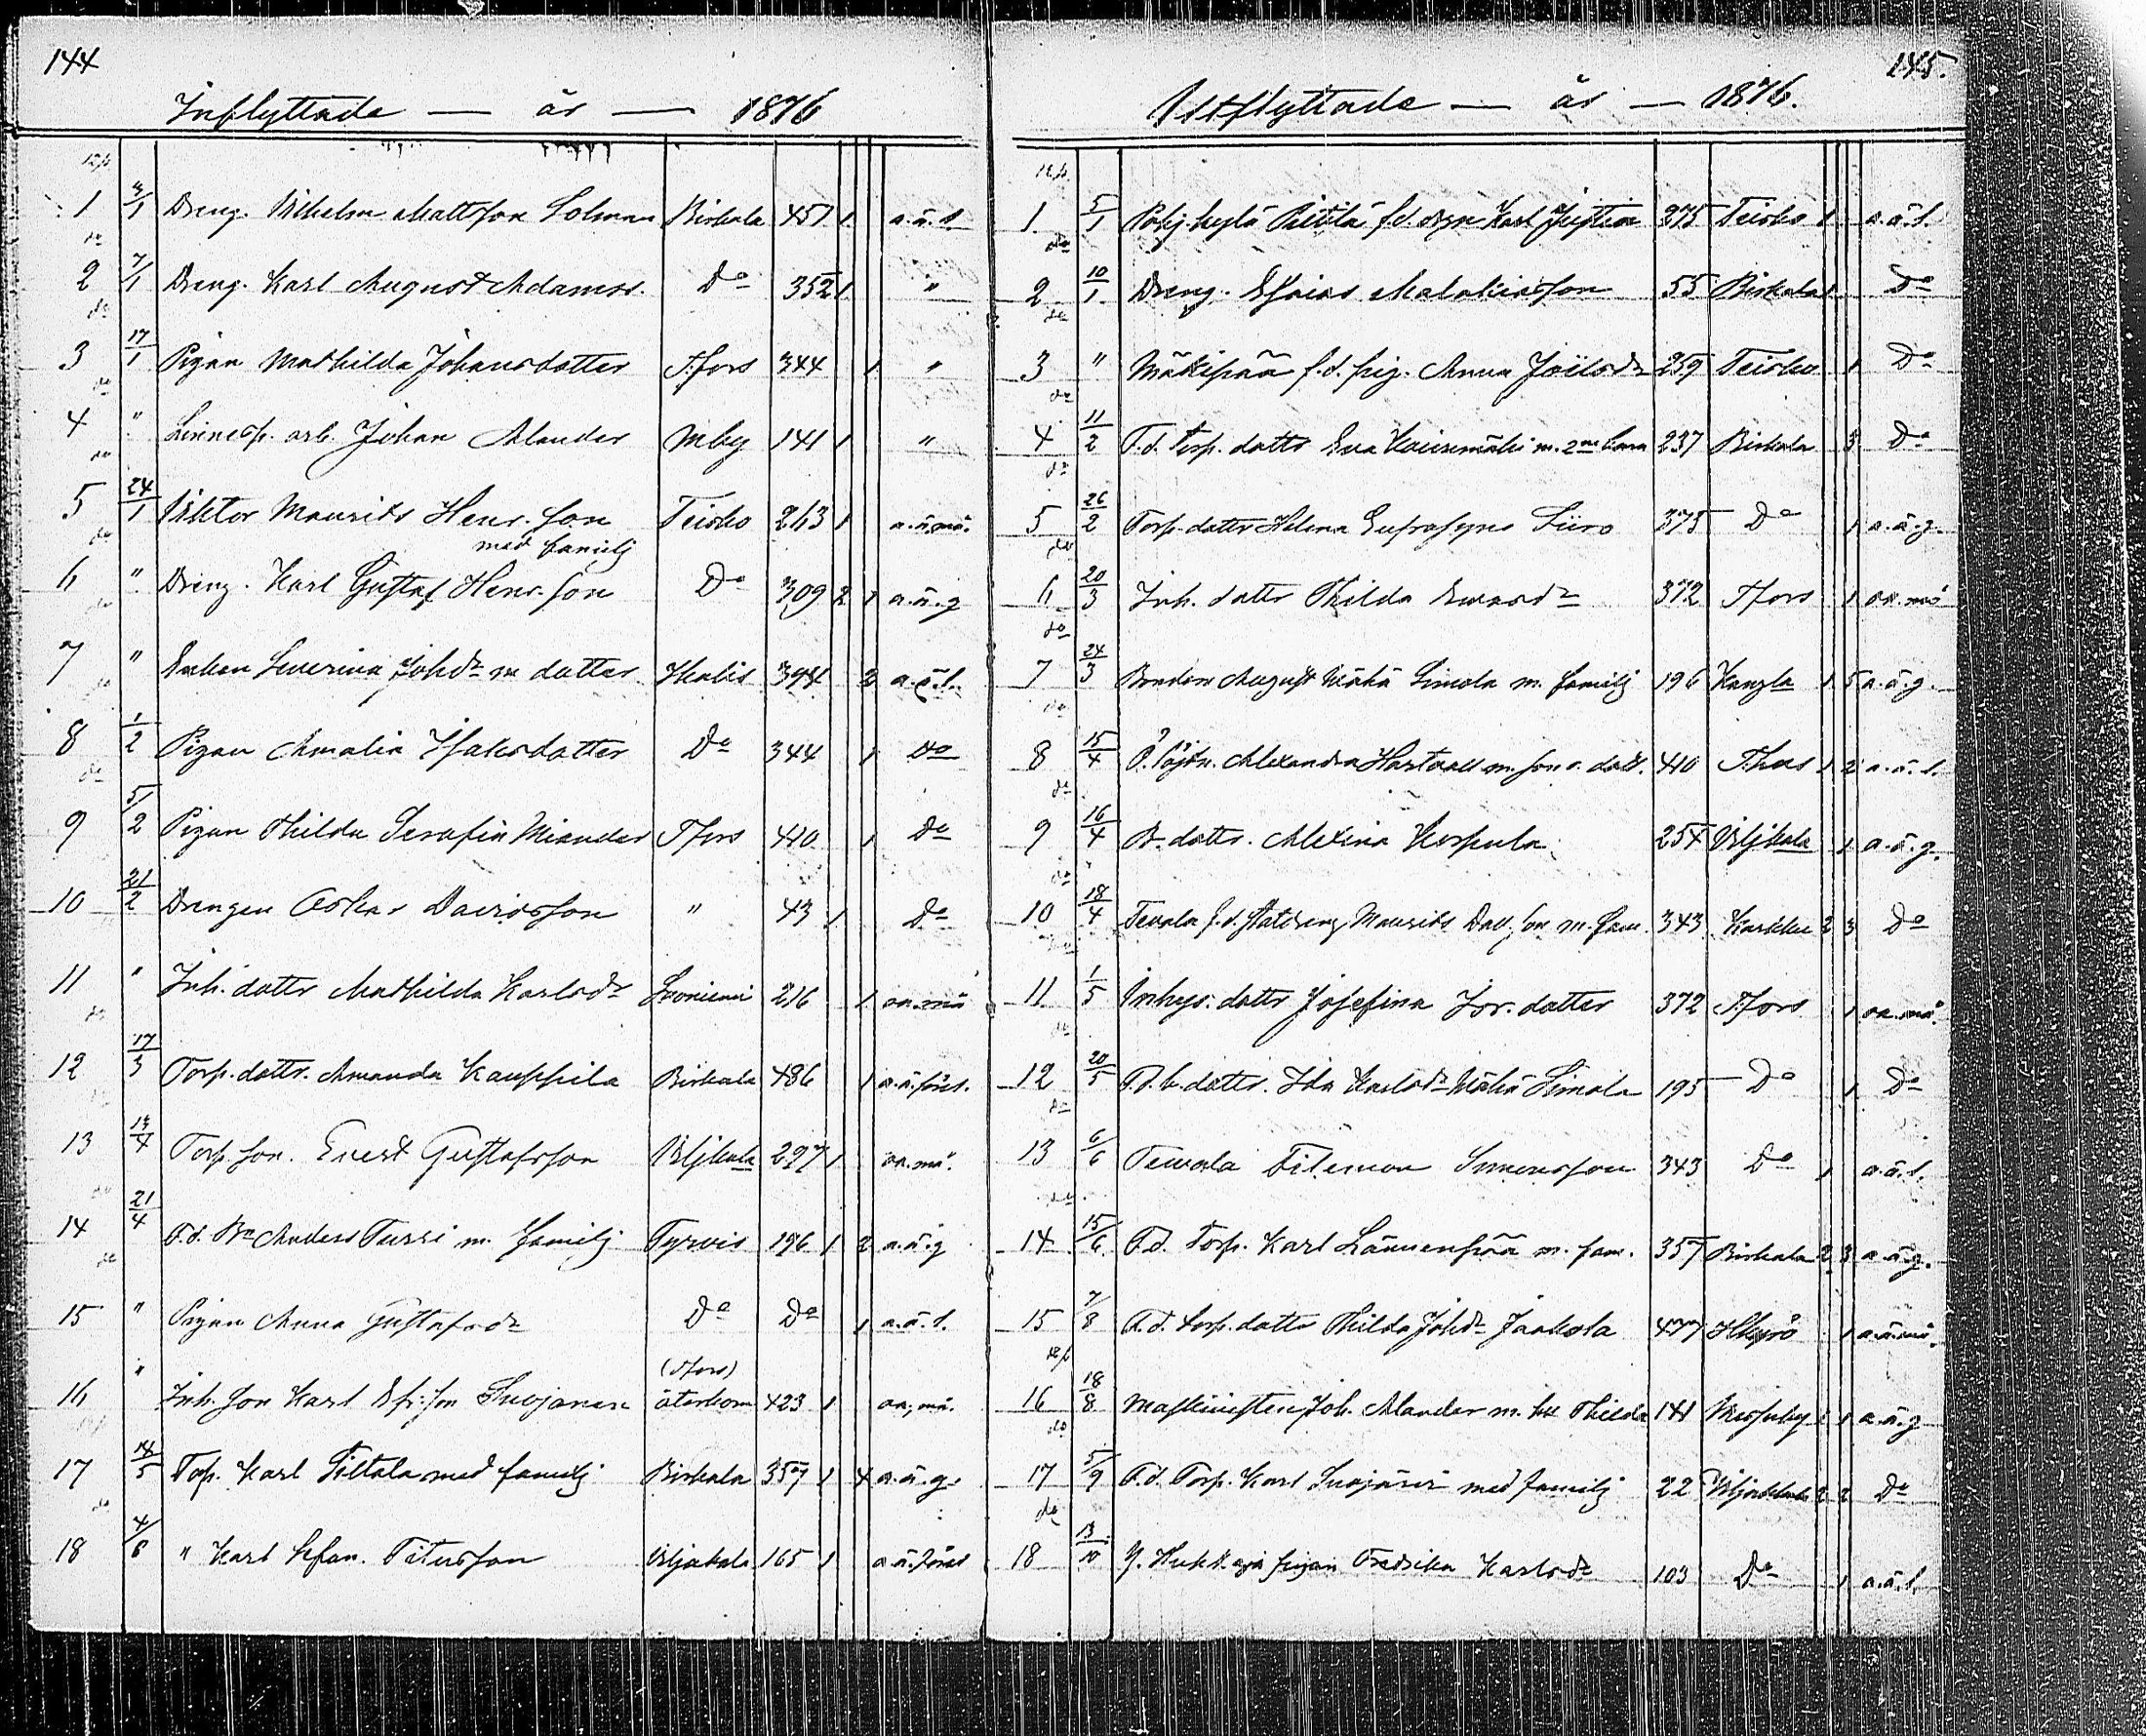 144
Inflyttade — år — 1876
1 3/1 Dreng. Vilhelm Mattsson Solman Birkala 451 1 a.ä.l.
2 7/1 Dreng. Karl August Adamss. Do 352 1 "
3 17/1 Pigan Mathilda Johansdotter Tfors 344 1 "
4 " Linnesp. arb. Johan Alander Mby 141 1 "
5 24/1 Viktor Maurits Henr. son Teisko 263 1 a.ä.må.
med familj
6 " Dreng. Karl Gustaf Henr. son Do 309 2 1 a.ä.g
7 " Enkan Severina Johdr m dotter Ikalis 394 2 a.ä.l.
8 1/2 Pigan Amalia Isaksdotter Do 344 1 Do
9 5/2 Pigan Thilda Serafia Miander Tfors 410 1 Do
10 21/2 Drengen Oskar Davidsson " 43 1 Do
11 " Inh. dottr Mathilda Karlsdr Suoniemi 216 1 oa. må
12 17/3 Torp. dottr. Amanda Kauppila Birkala 486 1 a.ä.förl.
13 13/4 Torp. son. Evert Gustafsson Viljkala 297 1 oa. må.
14 21/4 F.d. Bn Anders Tussi m. familj Tyrvis 196 1 2 a.ä.g
15 " Pigan Anna Gustafsdr Do Do 1 a.ä.l.
(Tfors)
16 " Inh. son Karl Efr. son Suojanen återkom 423 1 oa, må.
17 14/5 Torp. Karl Tiltala med familj Birkala 357 1 4 a.ä.g.
18 4/6 " Karl Stefan. Titusson Viljakala 165 1 a.ä.förl
145.
Utflyttade — år — 1876.
1 5/1 f.d. drgn Karl Justin 275 Teisko 1 a.ä.l.
2 10/1 Dreng. Esaias Malakiasson 55 Birkala 1 Do
3 " Mäkipää f.d. pig. Anna Joilsdr 259 Teisko 1 Do
4 11/2 F.d. torp. dottr Eva m. 2ne barn 237 Birkala 3 Do
5 26/2 Torp. dottr Helena Eufrosyne Siiro 375 Do 1 a.ä.g.
6 20/3 Inh. dottr Thilda Ewardr 372 Tfors 1 oa. må
7 24/3 Bonden August Wähä Simola m. familj 196 Kangla 1 5 a.ä.g.
8 15/4 Alexandra Hartvall m. son o. dott. 410 Thus 1 2 a.ä.l.
9 16/4 B. dottr. Alexina Kospula 254 Viljkala 1 a.ä.g.
10 18/4 Tevala f.d. statdreng Maurits Dav. son m. fam. 343 Karkku 2 3 Do
11 1/5 Inhys. dottr Josefina Isr. dotter 372 Tfors 1 oa. må.
12 20/5 F.d. b. dottr. Ida Karlsdr Wähä Simola 195 Do 1 Do
13 6/6 Tevala Filemon Simonsson 343 Do 1 a.ä.l.
14 15/6 F.d. Torp. Karl Lännenpää m. fam. 357 Birkala 2 3 a.ä.g.
15 7/8 F.d. torp. dottr Thilda Johdr Jaakola 477 Ikyrö 1 a.ä.må.
16 18/8 Maskinisten Joh. Alander m. hu Thilda 141 1 1 a.ä.g
17 5/9 F.d. Torp. Karl Suojärvi med familj 22 Viljakkala 2 2 Do
18 13/10 pigan Fredrika Karlsdr 103 Do 1 a.ä.l.